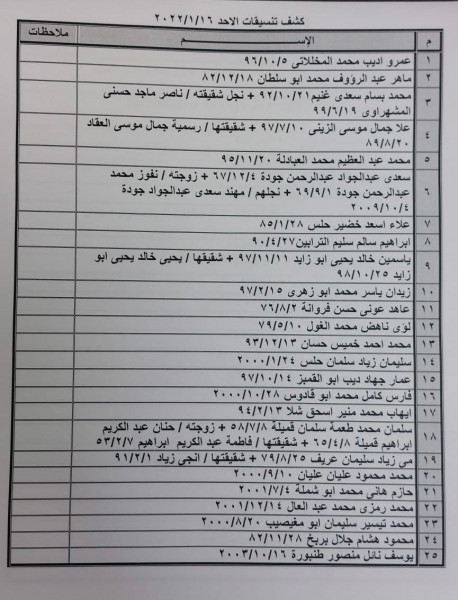 كشف تنسيقات الاحد ٢٠٢٢/١/١٦
م الإســـــم ملاحظات
١ عمرو اديب محمد المخللاتى ٩٦/١٠/٥
٢ ماهر عبد الرؤوف محمد ابو سلطان ٨٢/١٢/١٨
٣ محمد بسام سعدى غنيم ٩٢/١٠/٢١ + نجل شقيقته / ناصر ماجد حسنى
المشهراوى ٩٩/٦/١٩
٤ علا جمال موسى الزينى ٩٧/٧/١٠ + شقيقتها / رسمية جمال موسى العقاد
٨٩/٨/٢٠
٥ محمد عبد العظيم محمد العبادلة ٩٥/١١/٢٠
٦ سعدى عبدالجواد عبدالرحمن جودة ٦٧/١٢/٤ + زوجته / نفوز محمد
عبدالرحمن جودة ٦٩/٩/١ + نجلهم / مهند سعدى عبدالجواد جودة
٢٠٠٩/١٠/٤
٧ علاء اسعد خضير حلس ٨٥/١/٢٨
٨ ابراهيم سالم سليم الترابين ٩٠/٤/٢٧
٩ ياسمين خالد يحيى ابو زايد ٩٧/١١/١١ + شقيقها / يحيى خالد يحيى ابو
زايد ٩٨/١٠/٢٥
١٠ زيدان ياسر محمد ابو زهرى ٩٧/٢/١٥
١١ عاهد عونى حسن فروانة ٧٦/٨/٢
١٢ لؤى ناهض محمد الغول ٧٩/٥/١٠
١٣ محمد احمد خميس حسان ٩٣/١٢/١٣
١٤ سليمان زياد سلمان حلس ٢٠٠٠/١/٢٤
١٥ عمار جهاد ديب ابو القمبز ٩٧/١٠/١٤
١٦ فارس كامل محمد ابو قادوس ٢٠٠٠/١٠/٢٨
١٧ ايهاب محمد منير اسحق شلا ٩٤/٢/١٣
١٨ سلمان محمد طعمة سلمان قميلة ٥٨/٧/٨ + زوجته / حنان عبد الكريم
ابراهيم قميلة ٦٥/٤/٨ + شقيقتها / فاطمة عبد الكريم ابراهيم ٥٣/٢/٧
١٩ مى زياد سليمان عريف ٧٩/٨/٢٥ + شقيقتها / انجى زياد ٩١/٢/١
٢٠ محمد محمود عليان عليان ٢٠٠٠/٩/١٠
٢١ حازم هانى محمد ابو شملة ٢٠٠١/٧/٤
٢٢ محمد رمزى محمد عبد العال ٢٠٠١/١٢/١٤
٢٣ محمد تيسير سليمان ابو مغيصيب ٢٠٠٠/٨/٢٠
٢٤ محمود هشام جلال بربخ ٨٢/١١/٢٨
٢٥ يوسف نائل منصور طنبورة ٢٠٠٣/١٠/١٦